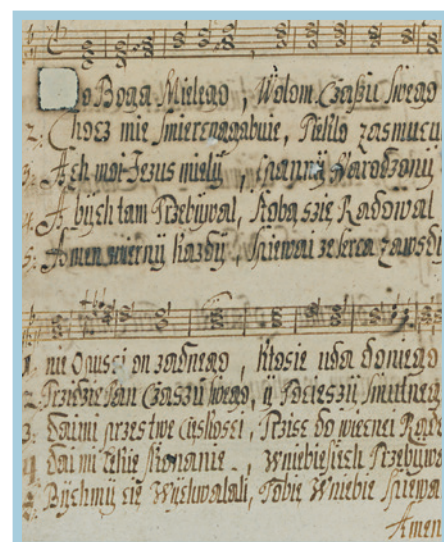 o Boga Mielego, Wolom Czaßu swego
2. Chocz mie smierc nagabuie, Piekło zasmucu
3. Ach moi Jezus mielÿ, spannÿ Narodzonÿ
4. A bÿch tam Przebÿwal, stobą szie, Radował
5. Amen wiernÿ kazdÿ, spiewai ze serca zawsdÿ
1. nie Opussi on zadnego, ktosie uda doniego
2. Przidzie Pan Czaszu swego, ÿ Pocieszÿ smutneg
3. daimi przes twe
4. dai mi skonanie, Wniebiesiech Przebÿwa
5. Bÿchmÿ cię Wÿchwalali, Tobie Wniebie spiewa
Amen